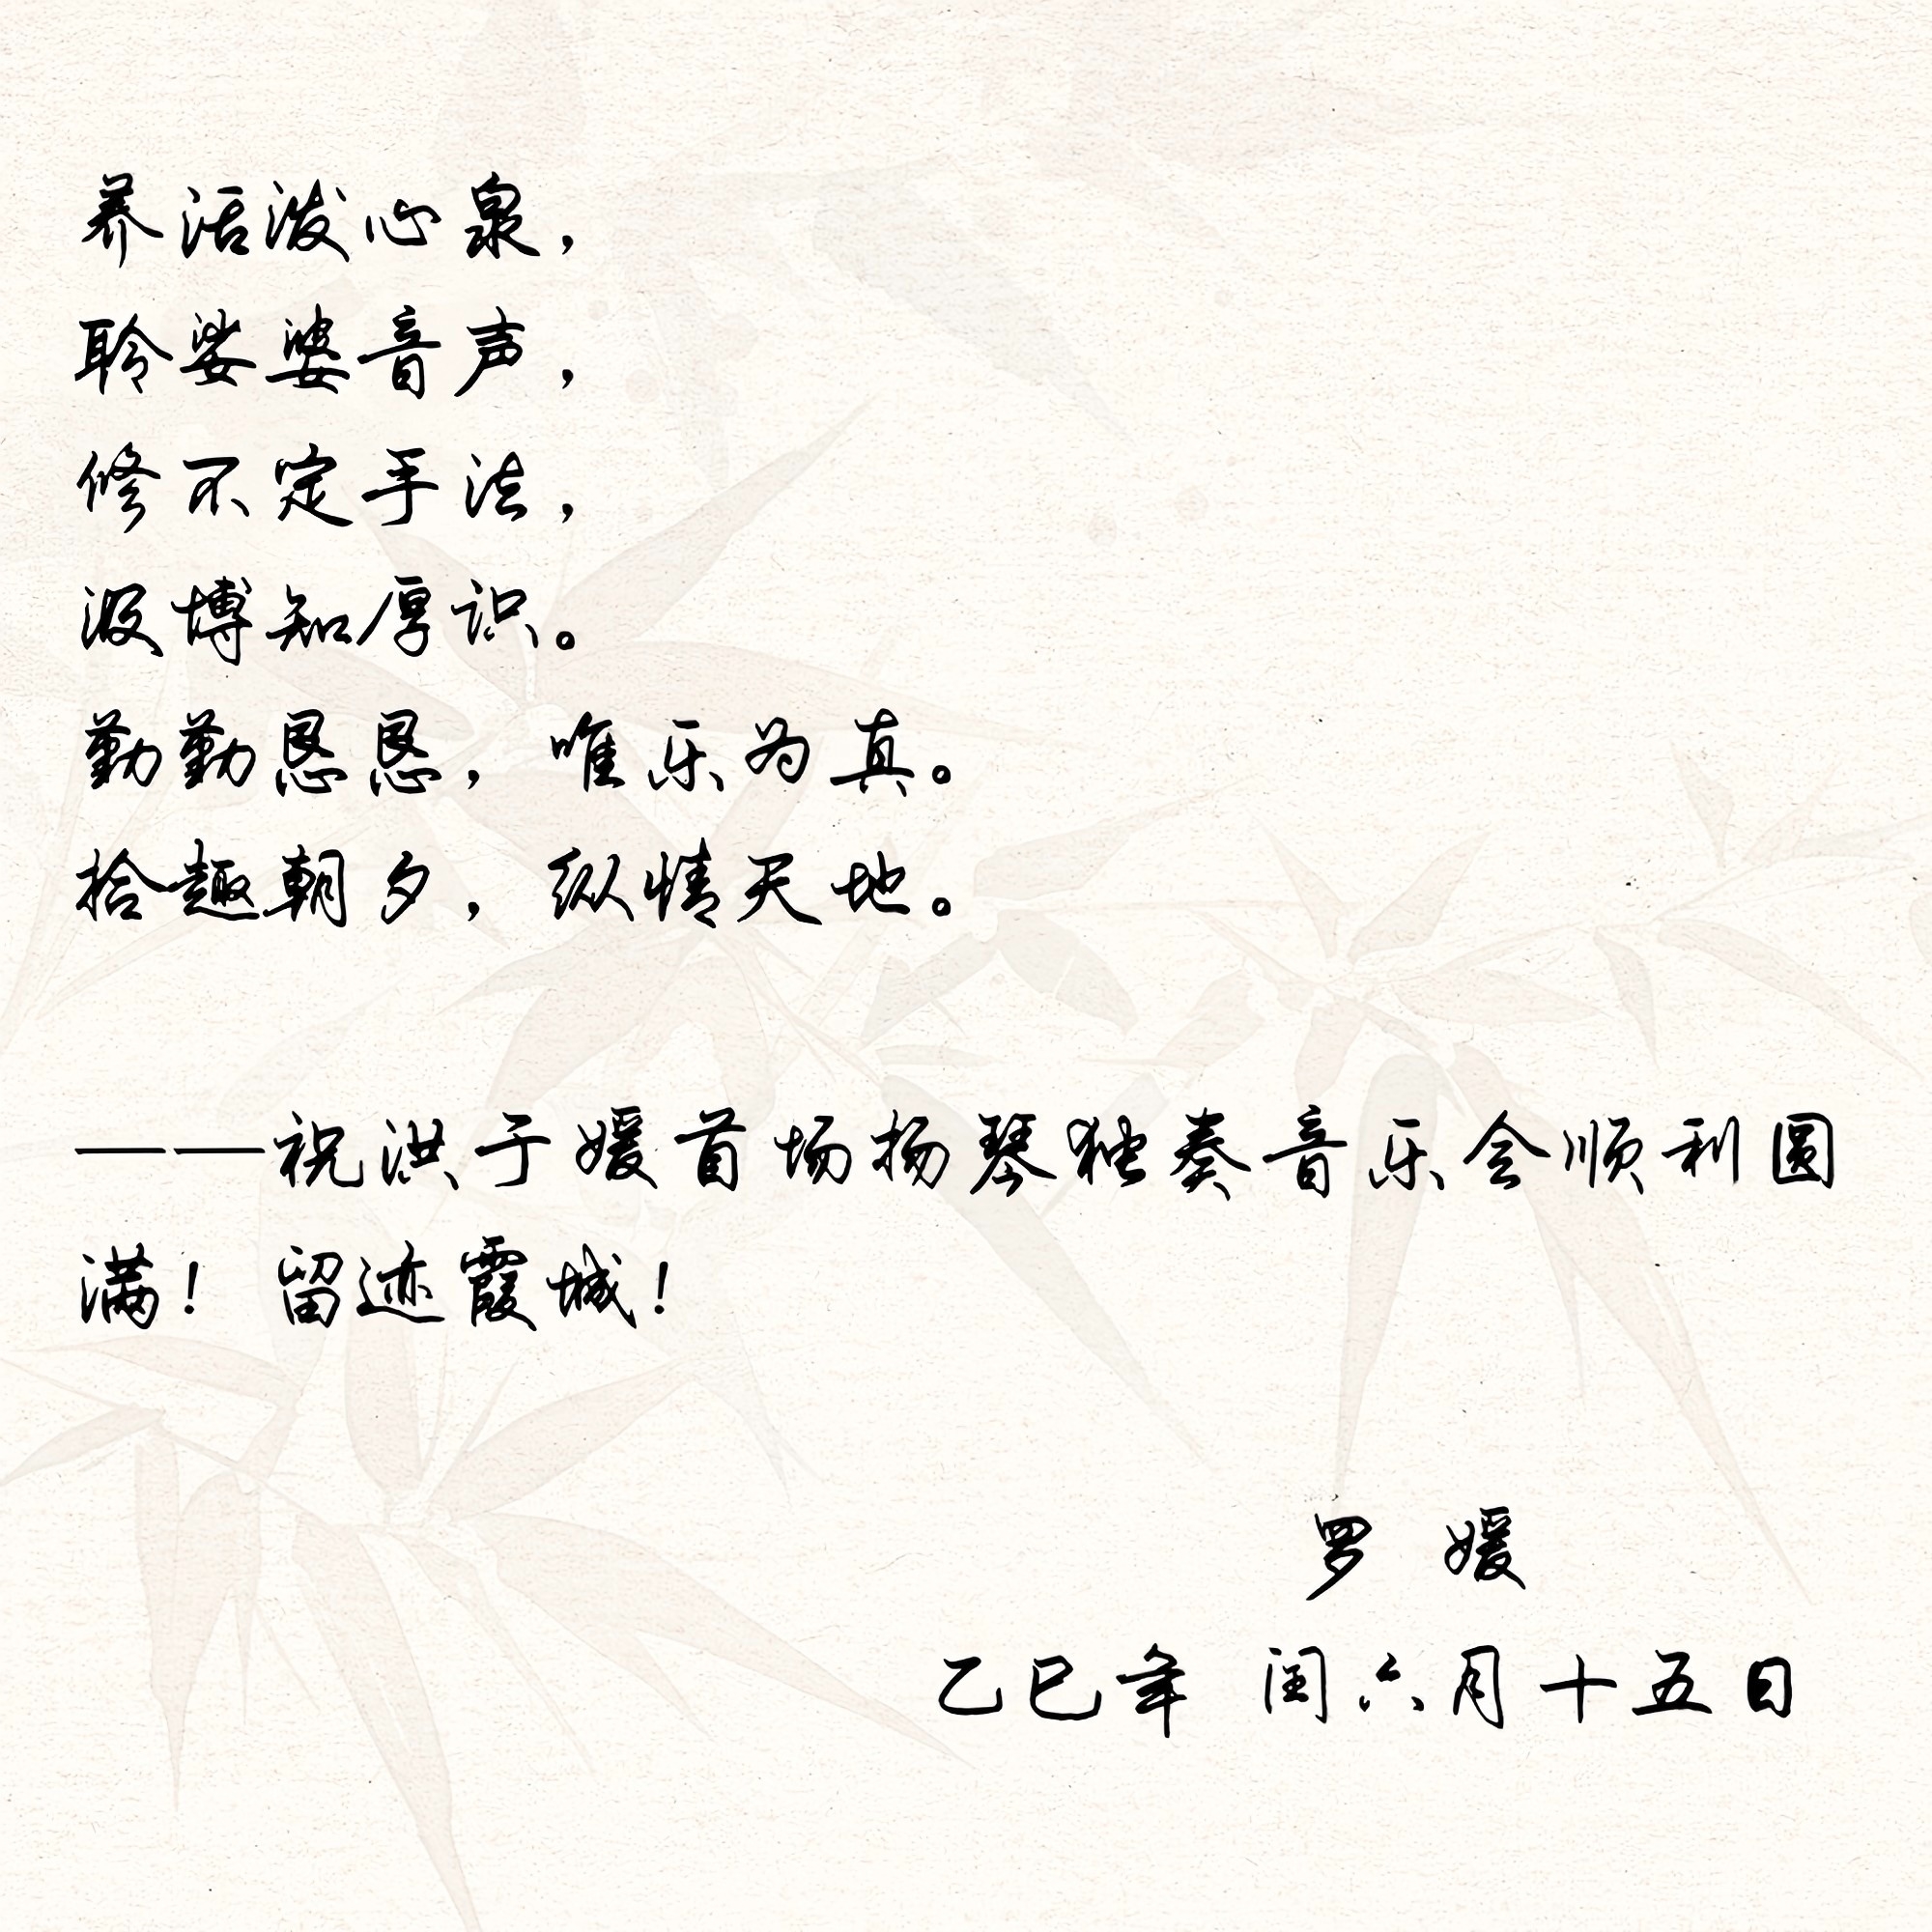 养活泼心泉，
聆娑婆音声，
修不定手法，
汲博知厚识。
勤勤恳恳，唯乐为真。
拾趣朝夕，纵情天地。
——祝洪于媛首场扬琴独奏音乐会顺利圆
满！留迹霞城！
罗 媛
乙巳年 闰六月十五日